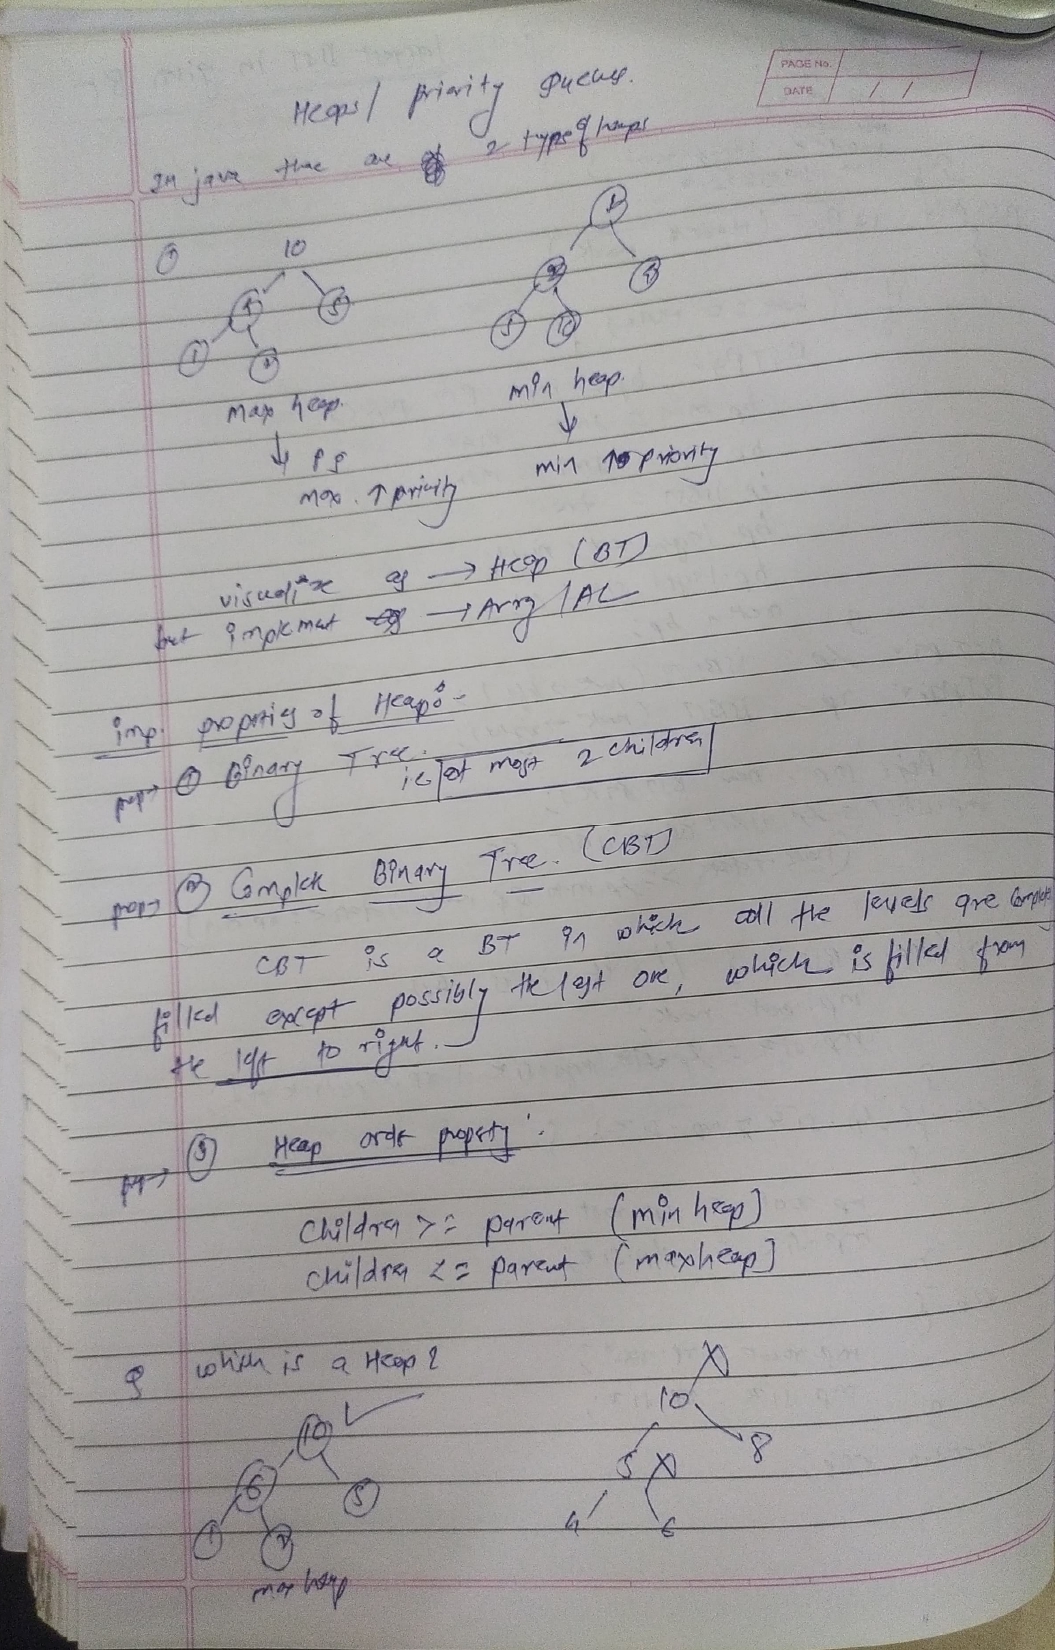 PAGE No.
DATE / /
Heaps / priority Queue.
In java there are 2 type of heaps
① 10
4 5
1 2
1
2 4
5 10
max heap.
min heap.
PQ
max. ↑ priority
min ↑ priority
visualize as → Heap (BT)
but implemat → Array / AL
imp. properties of Heap :-
prop → ① Binary Tree. ie at most 2 children
prop → ② Complete Binary Tree. (CBT)
CBT is a BT in which all the levels are complete
filled except possibly the last one, which is filled from
the left to right.
prop → ③ Heap order property :
Children >= parent (min heap)
Children <= parent (maxheap)
Q which is a Heap?
10 ✓
6 5
1 2
max heap
X
10
5 X 8
4 6